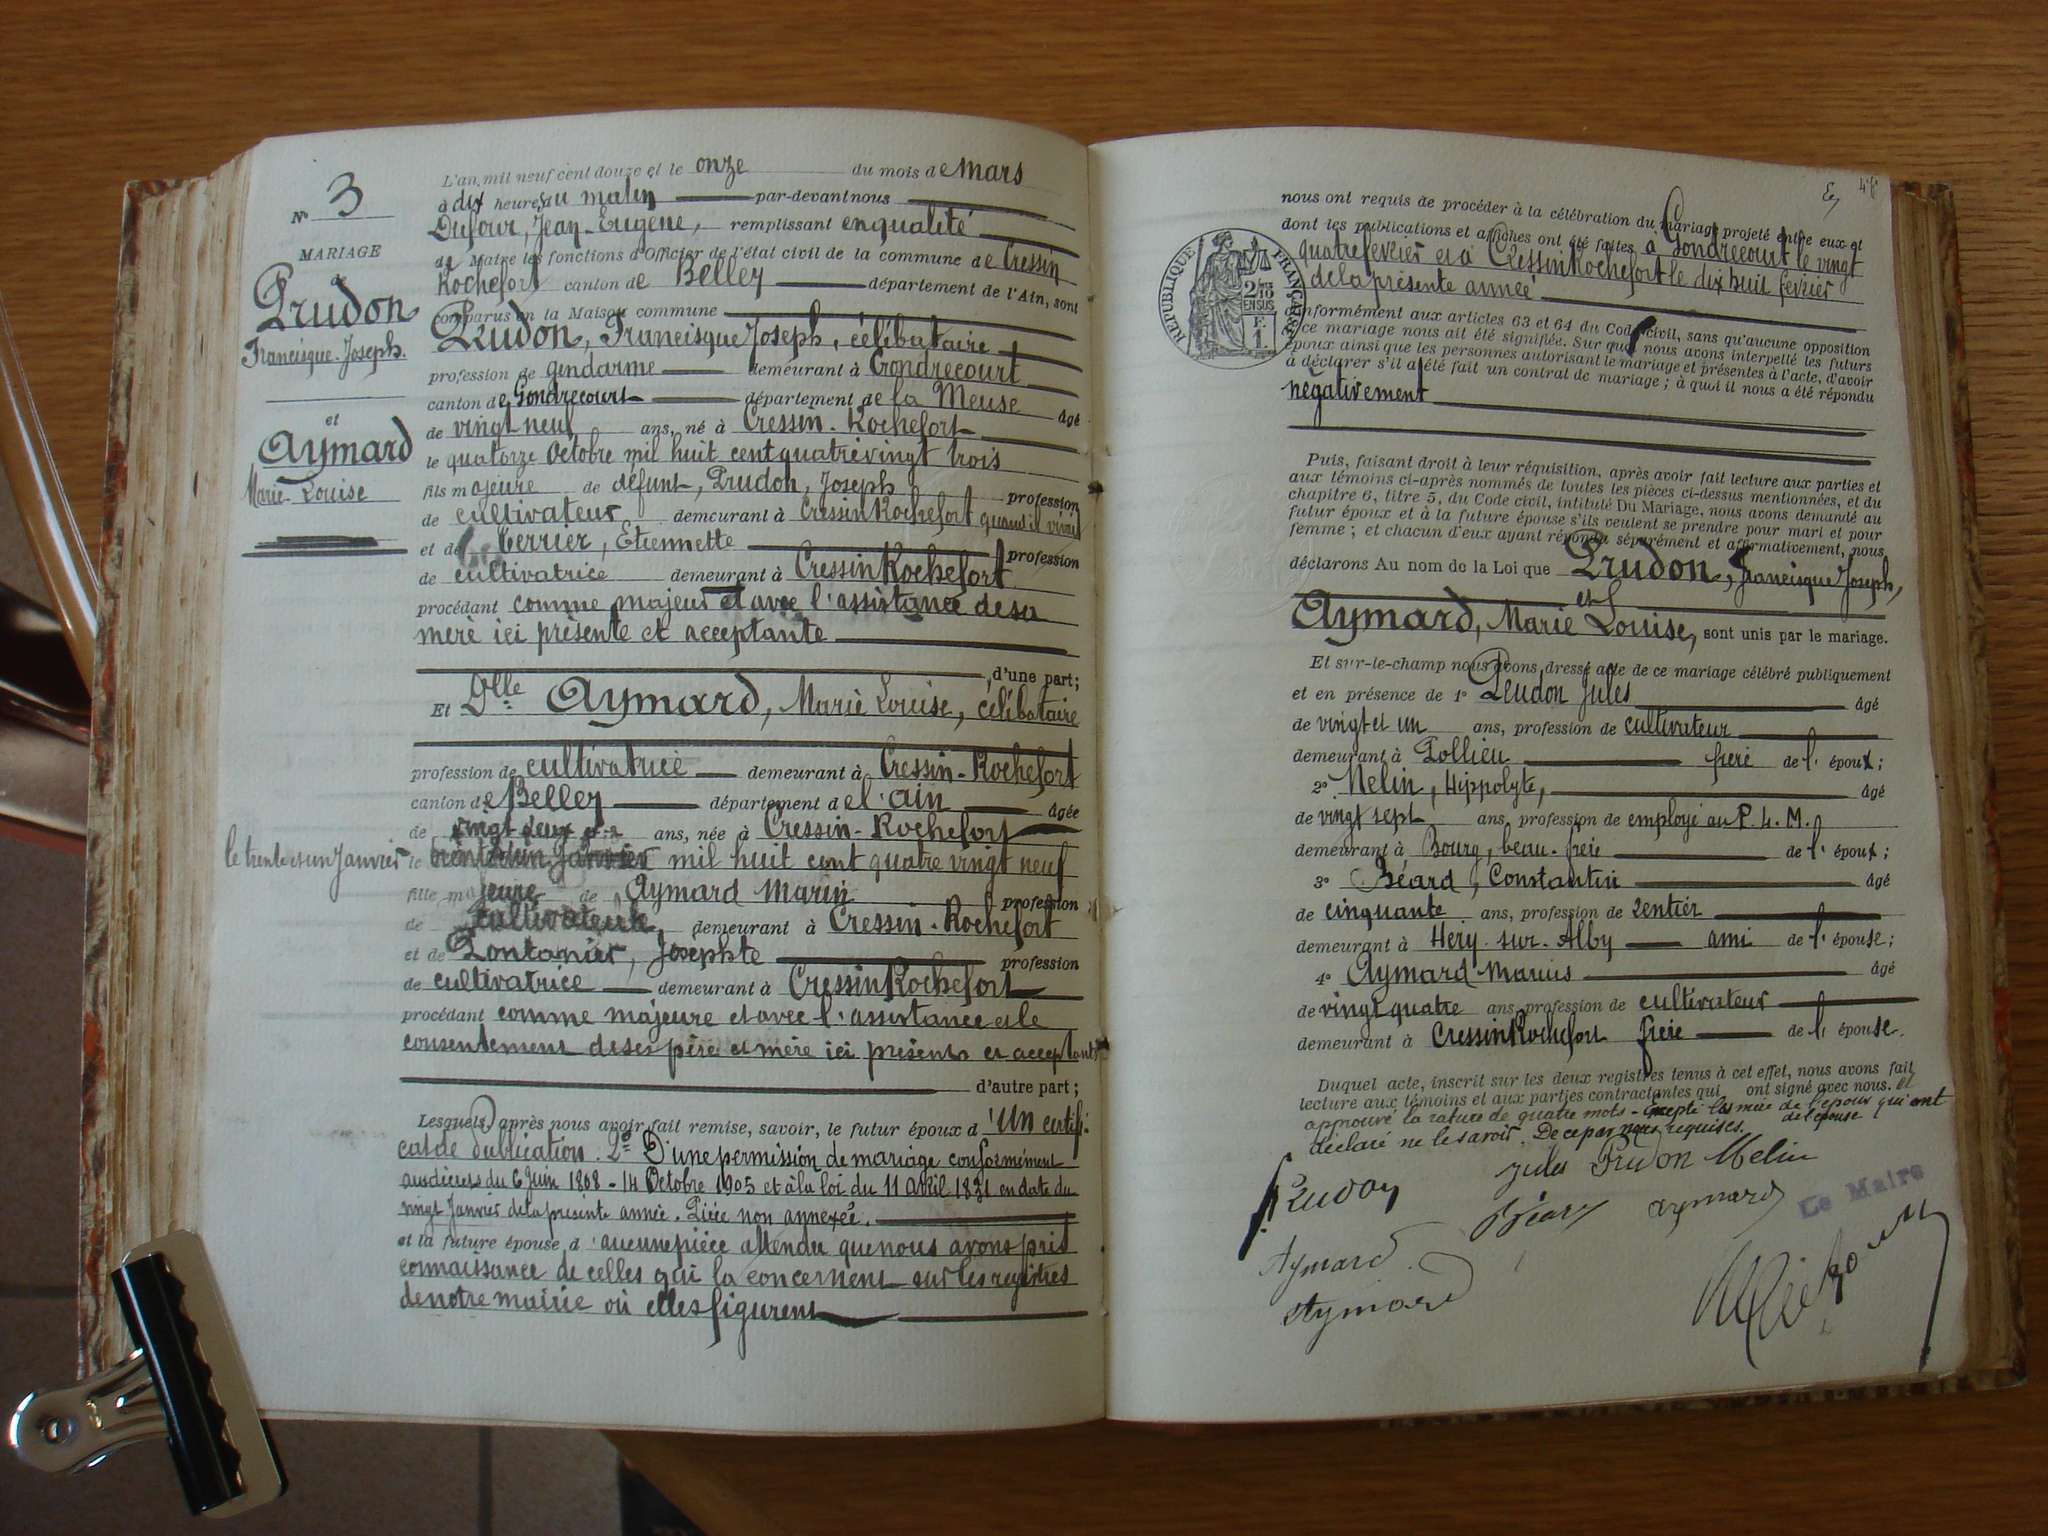 N° 3
MARIAGE
Prudon
Francisque Joseph.
et
Aymard
Marie Louise
L'an mil neuf cent douze et le onze du mois de Mars
à dix heures du matin par-devant nous
Dufour, Jean Eugène, remplissant en qualité
de Maire les fonctions d'Officier de l'état civil de la commune de Cressin
Rochefort canton de Belley département de l'Ain, sont
comparus en la Maison commune
Prudon, Francisque Joseph, célibataire
profession de gendarme demeurant à Gondrecourt
canton de Gondrecourt département de la Meuse âgé
de vingt neuf ans, né à Cressin-Rochefort
le quatorze Octobre mil huit cent quatre vingt trois
fils majeure de défunt, Prudon, Joseph profession
de cultivateur demeurant à Cressin Rochefort quand il vivait
et de Terrier, Etiennette profession
de cultivatrice demeurant à Cressin Rochefort
procédant comme majeur et avec l'assistance de sa
mère ici présente et acceptante
d'une part;
Et Dlle Aymard, Marie Louise, célibataire
profession de cultivatrice demeurant à Cressin-Rochefort
canton de Belley département de l'ain âgée
de vingt deux ans, née à Cressin-Rochefort
le trente et un Janvier le mil huit cent quatre vingt neuf
fille majeure de Aymard Marin profession
de cultivateur, demeurant à Cressin-Rochefort
et de Pontanier, Josephte profession
de cultivatrice demeurant à Cressin Rochefort
procédant comme majeure et avec l'assistance et le
consentement de ses père et mère ici présents et acceptants
d'autre part;
Lesquels, après nous avoir fait remise, savoir, le futur époux d'Un certifi-
cat de publication. 2° D'une permission de mariage conformément
aux décrets du 6 Juin 1808 - 14 Octobre 1905 et à la loi du 11 avril 1831 en date du
vingt Janvier de la présente année. Pièce non annexée.
et la future épouse d'aucune pièce attendu que nous avons pris
connaissance de celles qui la concernent sur les registres
de notre mairie où elles figurent
48
nous ont requis de procéder à la célébration du mariage projeté entre eux et
dont les publications et affiches ont été faites à Gondrecourt le vingt
quatre février et à Cressin Rochefort le dix huit février
de la présente année
RÉPUBLIQUE FRANÇAISE
2/10 EN SUS
F. 1.
conformément aux articles 63 et 64 du Code civil, sans qu'aucune opposition
à ce mariage nous ait été signifiée. Sur quoi nous avons interpellé les futurs
époux ainsi que les personnes autorisant le mariage et présentes à l'acte, d'avoir
à déclarer s'il a été fait un contrat de mariage; à quoi il nous a été répondu
négativement
Puis, faisant droit à leur réquisition, après avoir fait lecture aux parties et
aux témoins ci-après nommés de toutes les pièces ci-dessus mentionnées, et du
chapitre 6, titre 5, du Code civil, intitulé Du Mariage, nous avons demandé au
futur époux et à la future épouse s'ils veulent se prendre pour mari et pour
femme; et chacun d'eux ayant répondu séparément et affirmativement, nous
déclarons Au nom de la Loi que Prudon, Francisque Joseph,
et
Aymard, Marie Louise, sont unis par le mariage.
Et sur-le-champ nous avons dressé acte de ce mariage célébré publiquement
et en présence de 1° Prudon Jules âgé
de vingt et un ans, profession de cultivateur
demeurant à Pollieu frère de l'époux;
2° Melin, Hippolyte, âgé
de vingt sept ans, profession de employé au P. L. M.
demeurant à Bourg, beau-frère de l'époux;
3° Béard, Constantin âgé
de cinquante ans, profession de rentier
demeurant à Héry-sur-Alby ami de l'épouse;
4° Aymard Marius âgé
de vingt quatre ans, profession de cultivateur
demeurant à Cressin Rochefort frère de l'épouse.
Duquel acte, inscrit sur les deux registres tenus à cet effet, nous avons fait
lecture aux témoins et aux parties contractantes qui ont signé avec nous. et
approuvé la rature de quatre mots - Excepté les mère de l'époux qui ont
de l'épouse
déclaré ne le savoir. De ce par nous requises.
Jules Prudon Melin
Prudon
Béard Aymard Le Maire
Aymard
Aymard